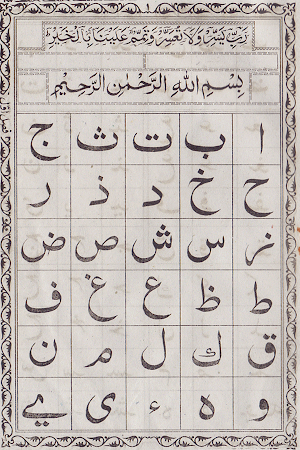 رَبِّ يَسِّرْ وَلَا تُعَسِّرْ وَتَمِّمْ عَلَيْنَا بِالْخَيْرِ
بِسْمِ اللهِ الرَّحْمٰنِ الرَّحِيْمِ
ا ب ت ث ج
ح خ د ذ ر
ز س ش ص ض
ط ظ ع غ ف
ق ك ل م ن
و ه ء ي ے